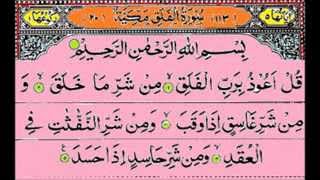 سُوْرَةُ الْفَلَقِ مَكِّيَّةٌ (٢٠) (١١٣)
بِسْمِ اللّٰهِ الرَّحْمٰنِ الرَّحِيْمِ
قُلْ اَعُوْذُ بِرَبِّ الْفَلَقِ مِنْ شَرِّ مَا خَلَقَ وَ
مِنْ شَرِّ غَاسِقٍ اِذَا وَقَبَ وَمِنْ شَرِّ النَّفّٰثٰتِ فِی
الْعُقَدِ وَمِنْ شَرِّ حَاسِدٍ اِذَا حَسَدَ